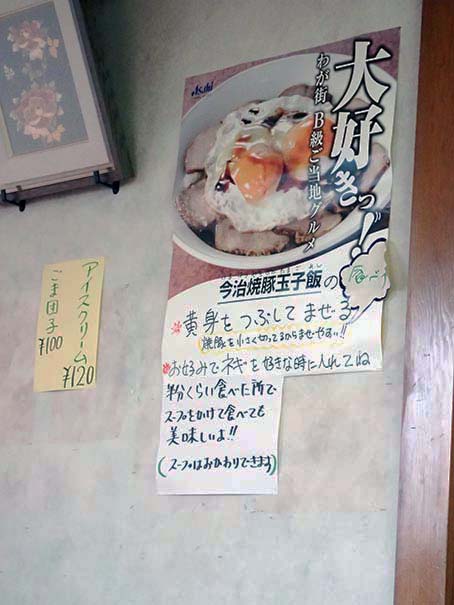 Asahi
大好きっ!
わが街 B級ご当地グルメ
今治焼豚玉子飯の
食べ
黄身をつぶしてまぜる
焼豚を小さく切ってるからまぜやすい!!
お好みでネギを好きな時に入れてね
粉くらい食べた所で
スープをかけて食べても
美味しいよ!!
(スープはおかわりできます)
アイスクリーム
¥120
ごま団子
¥100